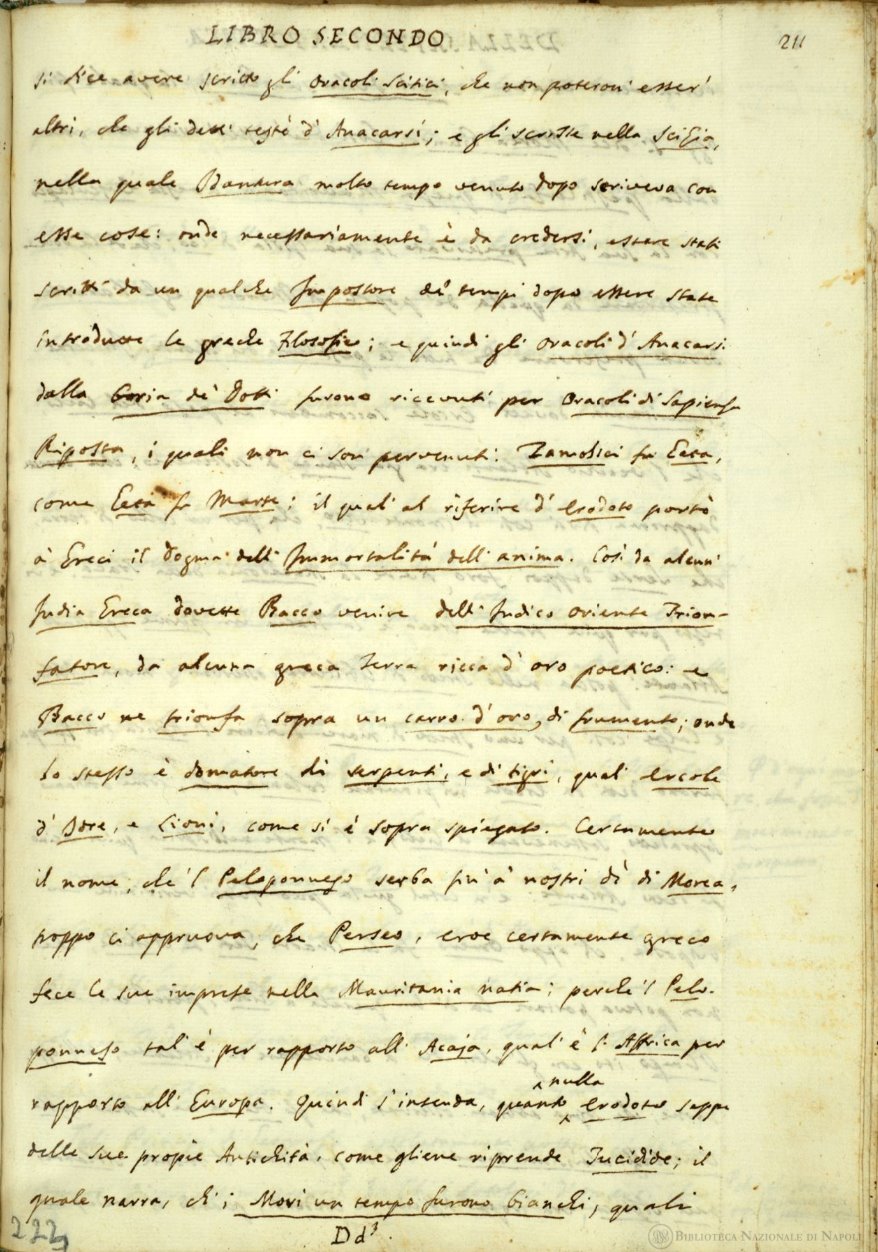 LIBRO SECONDO
211
si dice avere scritto gli Oracoli Scitici, che non poteron' esser'
altri, che gli detti testè d' Anacarsi; e gli scrisse nella Scizia,
nella quale molto tempo venuto dopo scriveva con
esse cose: onde necessariamente è da credersi, essere stati
scritti da un qualche Impostore de' tempi dopo essere state
introdutte le greche Filosofie; e quindi gli Oracoli d' Anacarsi
dalla boria de' Dotti furono ricevuti per Oracoli di Sapienza
Riposta, i quali non ci son pervenuti. Zamolsci fu Geta,
come Geta fu Marte; il qual' al riferire d' Erodoto portò
a' Greci il Dogma dell' Immortalità dell' anima. Così da alcun'
India Greca dovette Bacco venire dell' Indico Oriente Trion-
fatore, da alcuna greca Terra ricca d' oro poetico: e
Bacco ne trionfa sopra un carro d' oro, di frumento; onde
lo stesso è domatore di serpenti, e di tigri, qual' Ercole
d' Idre, e Lioni, come si è sopra spiegato. Certamente
il nome, che 'l Peloponneso serba fin' a' nostri dì di Morea,
troppo ci appruova, che Perseo, eroe certamente greco
fece le sue imprese nella Mauritania natia; perchè 'l Pelo-
ponneso tal' è per rapporto all' Acaja, qual' è l' Affrica per
rapporto all' Europa. Quindi s' intenda, quanto nulla Erodoto seppe
delle sue propie Antichità, come gliene riprende Tucidide; il
quale narra, ch' i Mori un tempo furono bianchi, quali
Dd3.
222
BIBLIOTECA NAZIONALE DI NAPOLI